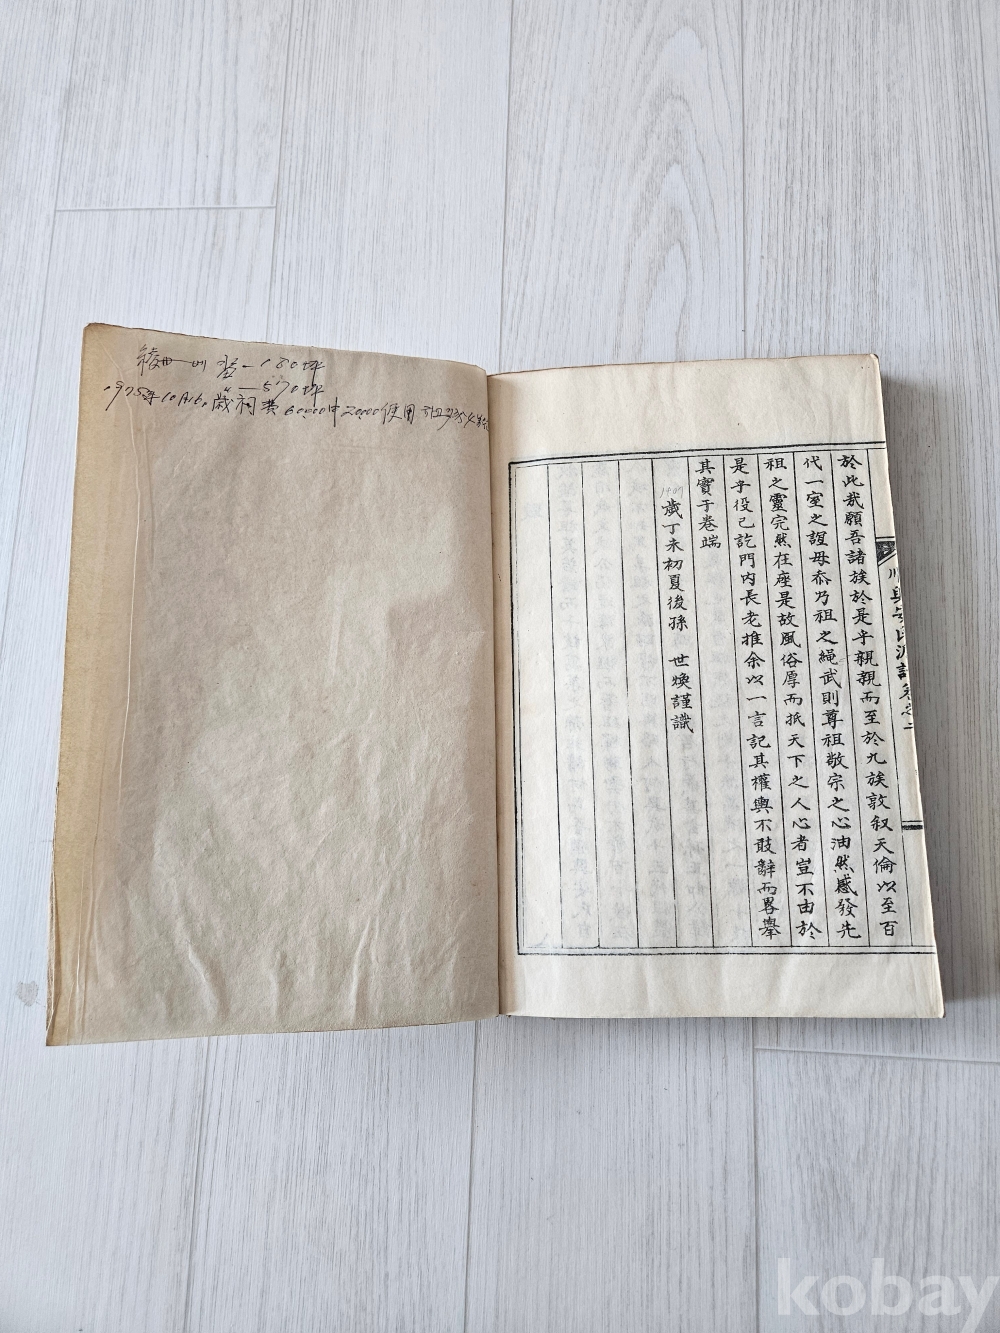 1975年10月16日 歲祠費 60,000中 20,000使用
於此哉願吾諸族於是乎親親而至於九族敦叙天倫以至百
代一室之誼毋忝乃祖之繩武則尊祖敬宗之心油然感發先
祖之靈完然在座是故風俗厚而抵天下之人心者豈不由於
是乎役已訖門內長老推余以一言記其權輿不敢辭而畧擧
其實于卷端
1907
歲丁未初夏後孫 世煥謹識
kobay